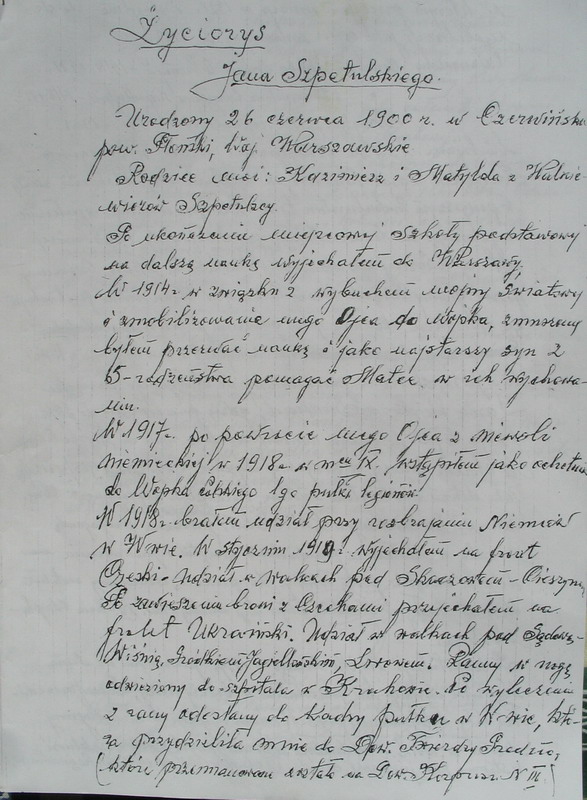 Życiorys
Jana Szpetulskiego.
Urodzony 26 czerwca 1900 r. w Czerwińsku
pow. Płoński, Woj. Warszawskie
Rodzice moi: Kazimierz i Matylda z Walkie-
wiczów Szpetulscy.
Po ukończeniu miejscowej Szkoły podstawowej
na dalszą naukę wyjechałem do Warszawy.
W 1914 r w związku z wybuchem wojny światowej
i zmobilizowaniu mego Ojca do wojska, zmuszony
byłem przerwać naukę i jako najstarszy syn z
5-rodzeństwa pomagać Matce w ich wychowa-
niu.
W 1917 r. po powrocie mego Ojca z niewoli
niemieckiej w 1918 r w m-cu IX. wstąpiłem jako ochotnik
do Wojska Polskiego 1go pułku legionów.
W 1918 r. brałem udział przy rozbrajaniu Niemców
w W-wie. W styczniu 1919 r. wyjechałem na front
Czeski. Udział w walkach pod Skoczowem - Cieszynem
Po zawieszeniu broni z Czechami przyjechałem na
front Ukraiński. Udział w walkach pod Sądową-
Wiśnią, Gródkiem Jagiellońskim, Lwowem. Ranny w nogę
odwieziony do szpitala w Krakowie. Po wyleczeniu
z rany odesłany do kadry pułku w W-wie, któ-
ra przydzieliła mnie do Dow. Twierdzy Grodno,
(które przemianowane zostało na Dow. Korpusu N III)